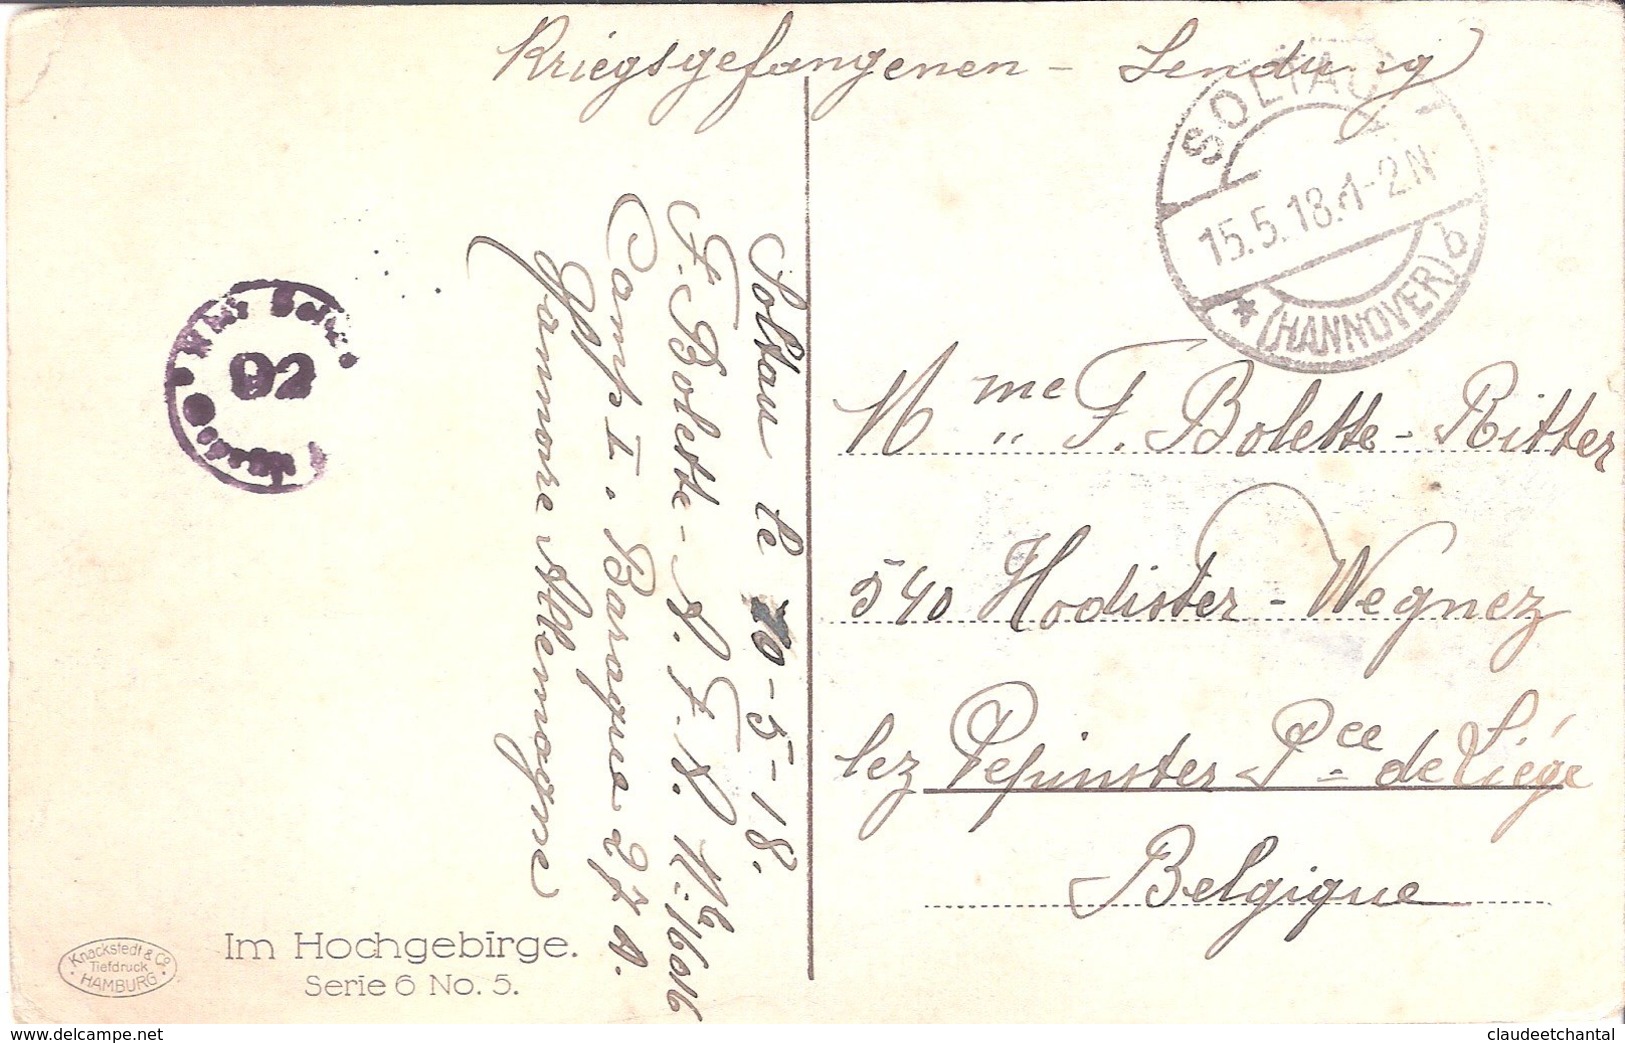 Kriegsgefangenen - Sendung
SOLTAU
15.5.18.1-2N
* (HANNOVER) b
Soltau le 10-5-18.
F. Bolette - A. F. A. No 16016
Camp I. Baraque 27 A.
Allemagne
92
Mme F. Bolette-Ritter
540 Hodister-Wegnez
lez Pepinster Pce de Liége
Belgique
Im Hochgebirge.
Serie 6 No. 5.
Knackstedt & Co
Tiefdruck
· HAMBURG ·
www.delcampe.net
claudeetchantal